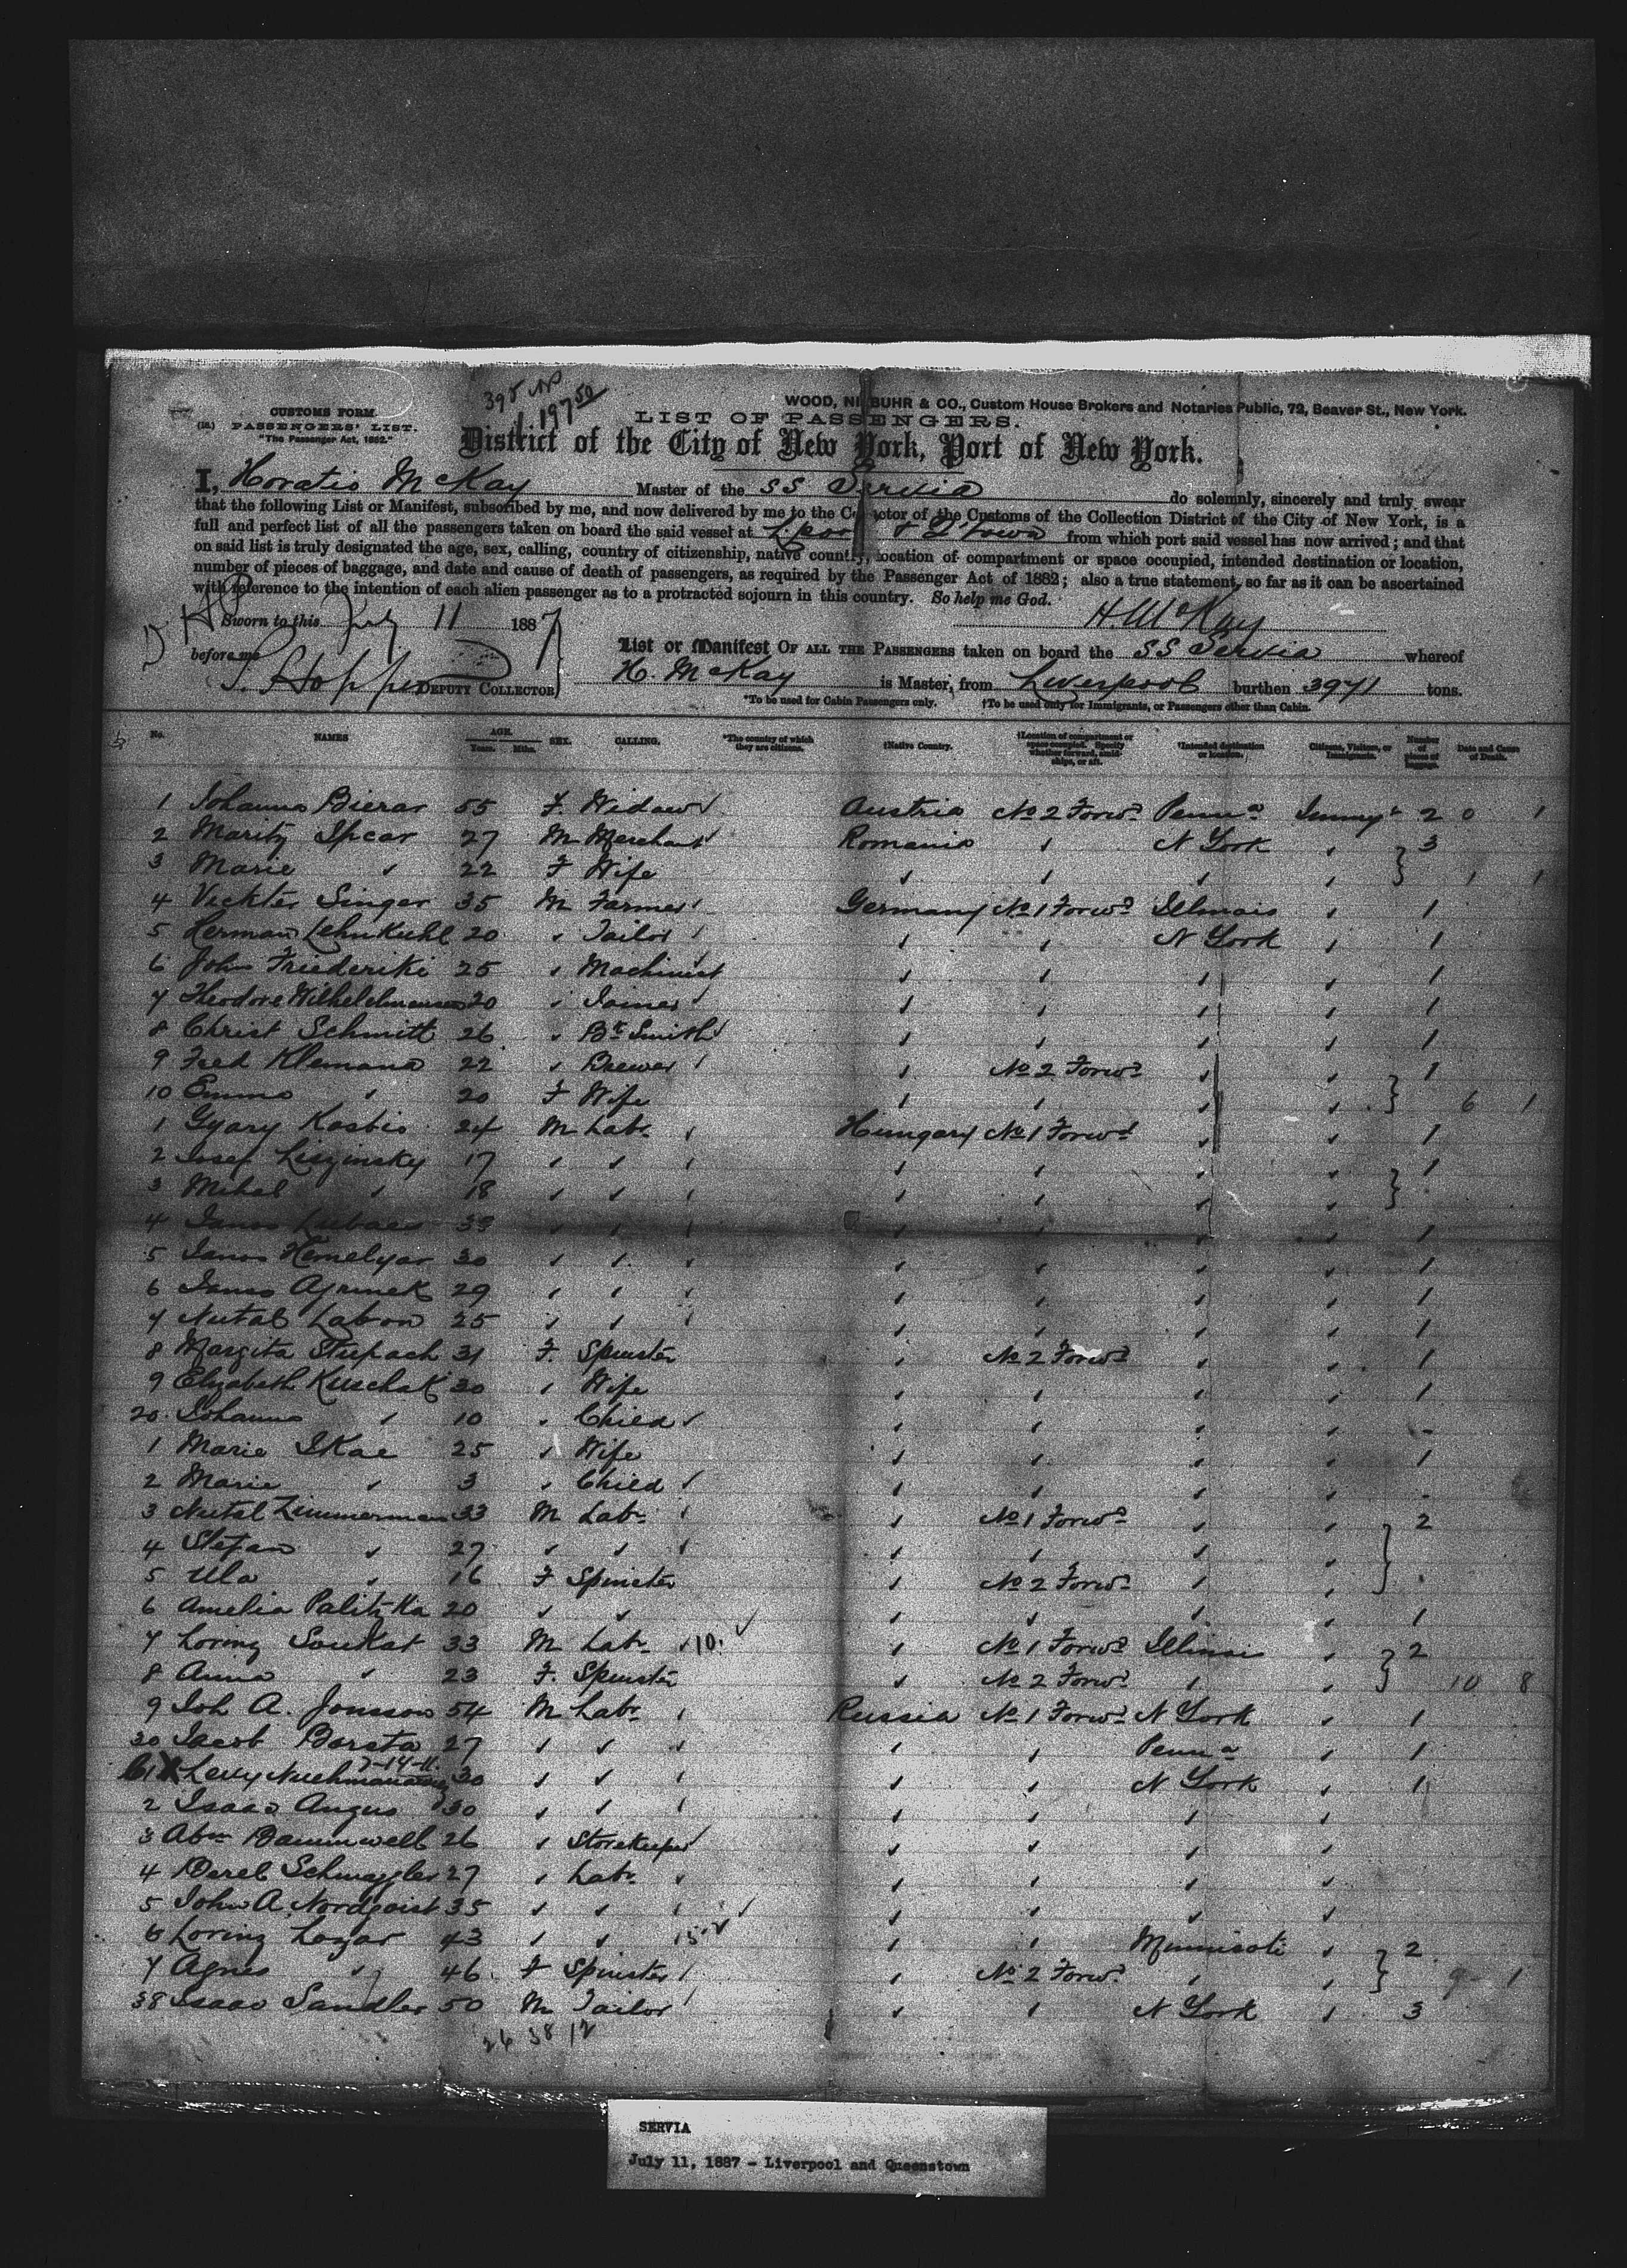 395
197 50
WOOD, NIEBUHR & CO., Custom House Brokers and Notaries Public, 72, Beaver St., New York.
CUSTOMS FORM.
PASSENGERS' LIST.
"The Passenger Act, 1882."
LIST OF PASSENGERS.
District of the City of New York, Port of New York.
I, Horatio McKay Master of the SS Servia do solemnly, sincerely and truly swear
that the following List or Manifest, subscribed by me, and now delivered by me to the Collector of the Customs of the Collection District of the City of New York, is a
full and perfect list of all the passengers taken on board the said vessel at L'pool & Q'Town from which port said vessel has now arrived; and that
on said list is truly designated the age, sex, calling, country of citizenship, native country, location of compartment or space occupied, intended destination or location,
number of pieces of baggage, and date and cause of death of passengers, as required by the Passenger Act of 1882; also a true statement, so far as it can be ascertained
with reference to the intention of each alien passenger as to a protracted sojourn in this country. So help me God.
Sworn to this July 11 1887 H. McKay
before me
S. Hopper DEPUTY COLLECTOR
List or Manifest OF ALL THE PASSENGERS taken on board the SS Servia whereof
H. McKay is Master, from Liverpool burthen 3971 tons.
*To be used for Cabin Passengers only. †To be used only for Immigrants, or Passengers other than Cabin.
No. NAMES AGE. Years. Mths. SEX. CALLING. *The country of which they are citizens. †Native Country. †Location of compartment or space occupied. Specify whether forward, amidships, or aft. †Intended destination or location. Citizens, Visitors, or Immigrants. Number of pieces of baggage. Date and Cause of Death.
1 Johanna Bierar 55 F. Widow Austria No 2 Forwd Penna 2 0 1
2 Moritz Spear 27 M Merchant Romania " N York " 3
3 Marie " 22 F Wife " " " " 1 1
4 Vickter Singer 35 M Farmer Germany No 1 Forwd Illinois " 1
5 Herman Lehnkuhl 20 " Tailor " " N York " 1
6 John Friederiki 25 " Machinist " " " " 1
7 Theodore 20 " Joiner " " " " 1
8 Christ Schmitt 26 " Bk Smith " " " " 1
9 Fred Klemana 22 " Brewer " No 2 Forwd " " 1
10 Emma " 20 F Wife " " " " 6 1
1 Gyary Kosbis 24 M Labr " Hungary No 1 Forwd " " 1
2 Josef Liszinsky 17 " " " " " " " 1
3 Mihal " 18 " " " " " " "
4 Janos 39 " " " " " " " 1
5 Janos Hemelyar 30 " " " " " " " 1
6 Janos 29 " " " " " " " 1
7 Labon 25 " " " " " " " 1
8 Margita Stupach 31 F. Spinster " No 2 Forwd " " 1
9 Elizabeth Kuschak 30 " Wife " " " " 1
20 Johanna " 10 " Child " " " " -
1 Marie Skae 25 " Wife " " " " 1
2 Marie " 3 " Child " " " " -
3 Zimmerman 33 M Labr " " No 1 Forwd " " 2
4 Stefan " 27 " " " " " " "
5 Ula " 16 F Spinster " No 2 Forwd " "
6 Amelia Palitzka 20 " " " " " " 1
7 Loring Soukat 33 M Labr " 10. " No 1 Forwd Illinois " 2
8 Anna " 23 F. Spinster " No 2 Forwd " " 10 8
9 Joh A. Jonsson 54 M Labr " Russia No 1 Forwd N York " 1
30 Jacob Borsta 27 " " " " " Penna " 1
7-14-11.
1 X Levy 30 " " " " " N York " 1
2 Isaac Angus 30 " " " " " " "
3 Abm Baumwell 26 " Storekeeper " " " "
4 Berel Schmaggler 27 " Labr " " " " "
5 John A. Nordqvist 35 " " " " " " "
6 Loring Lazar 43 " " 15 " " Minnisoti " 2
7 Agnes " 46 F Spinster " No 2 Forwd " " 9 1
38 Isaac Sandler 50 M Tailor " " N York " 3
26 38 12
SERVIA
July 11, 1887 - Liverpool and Queenstown